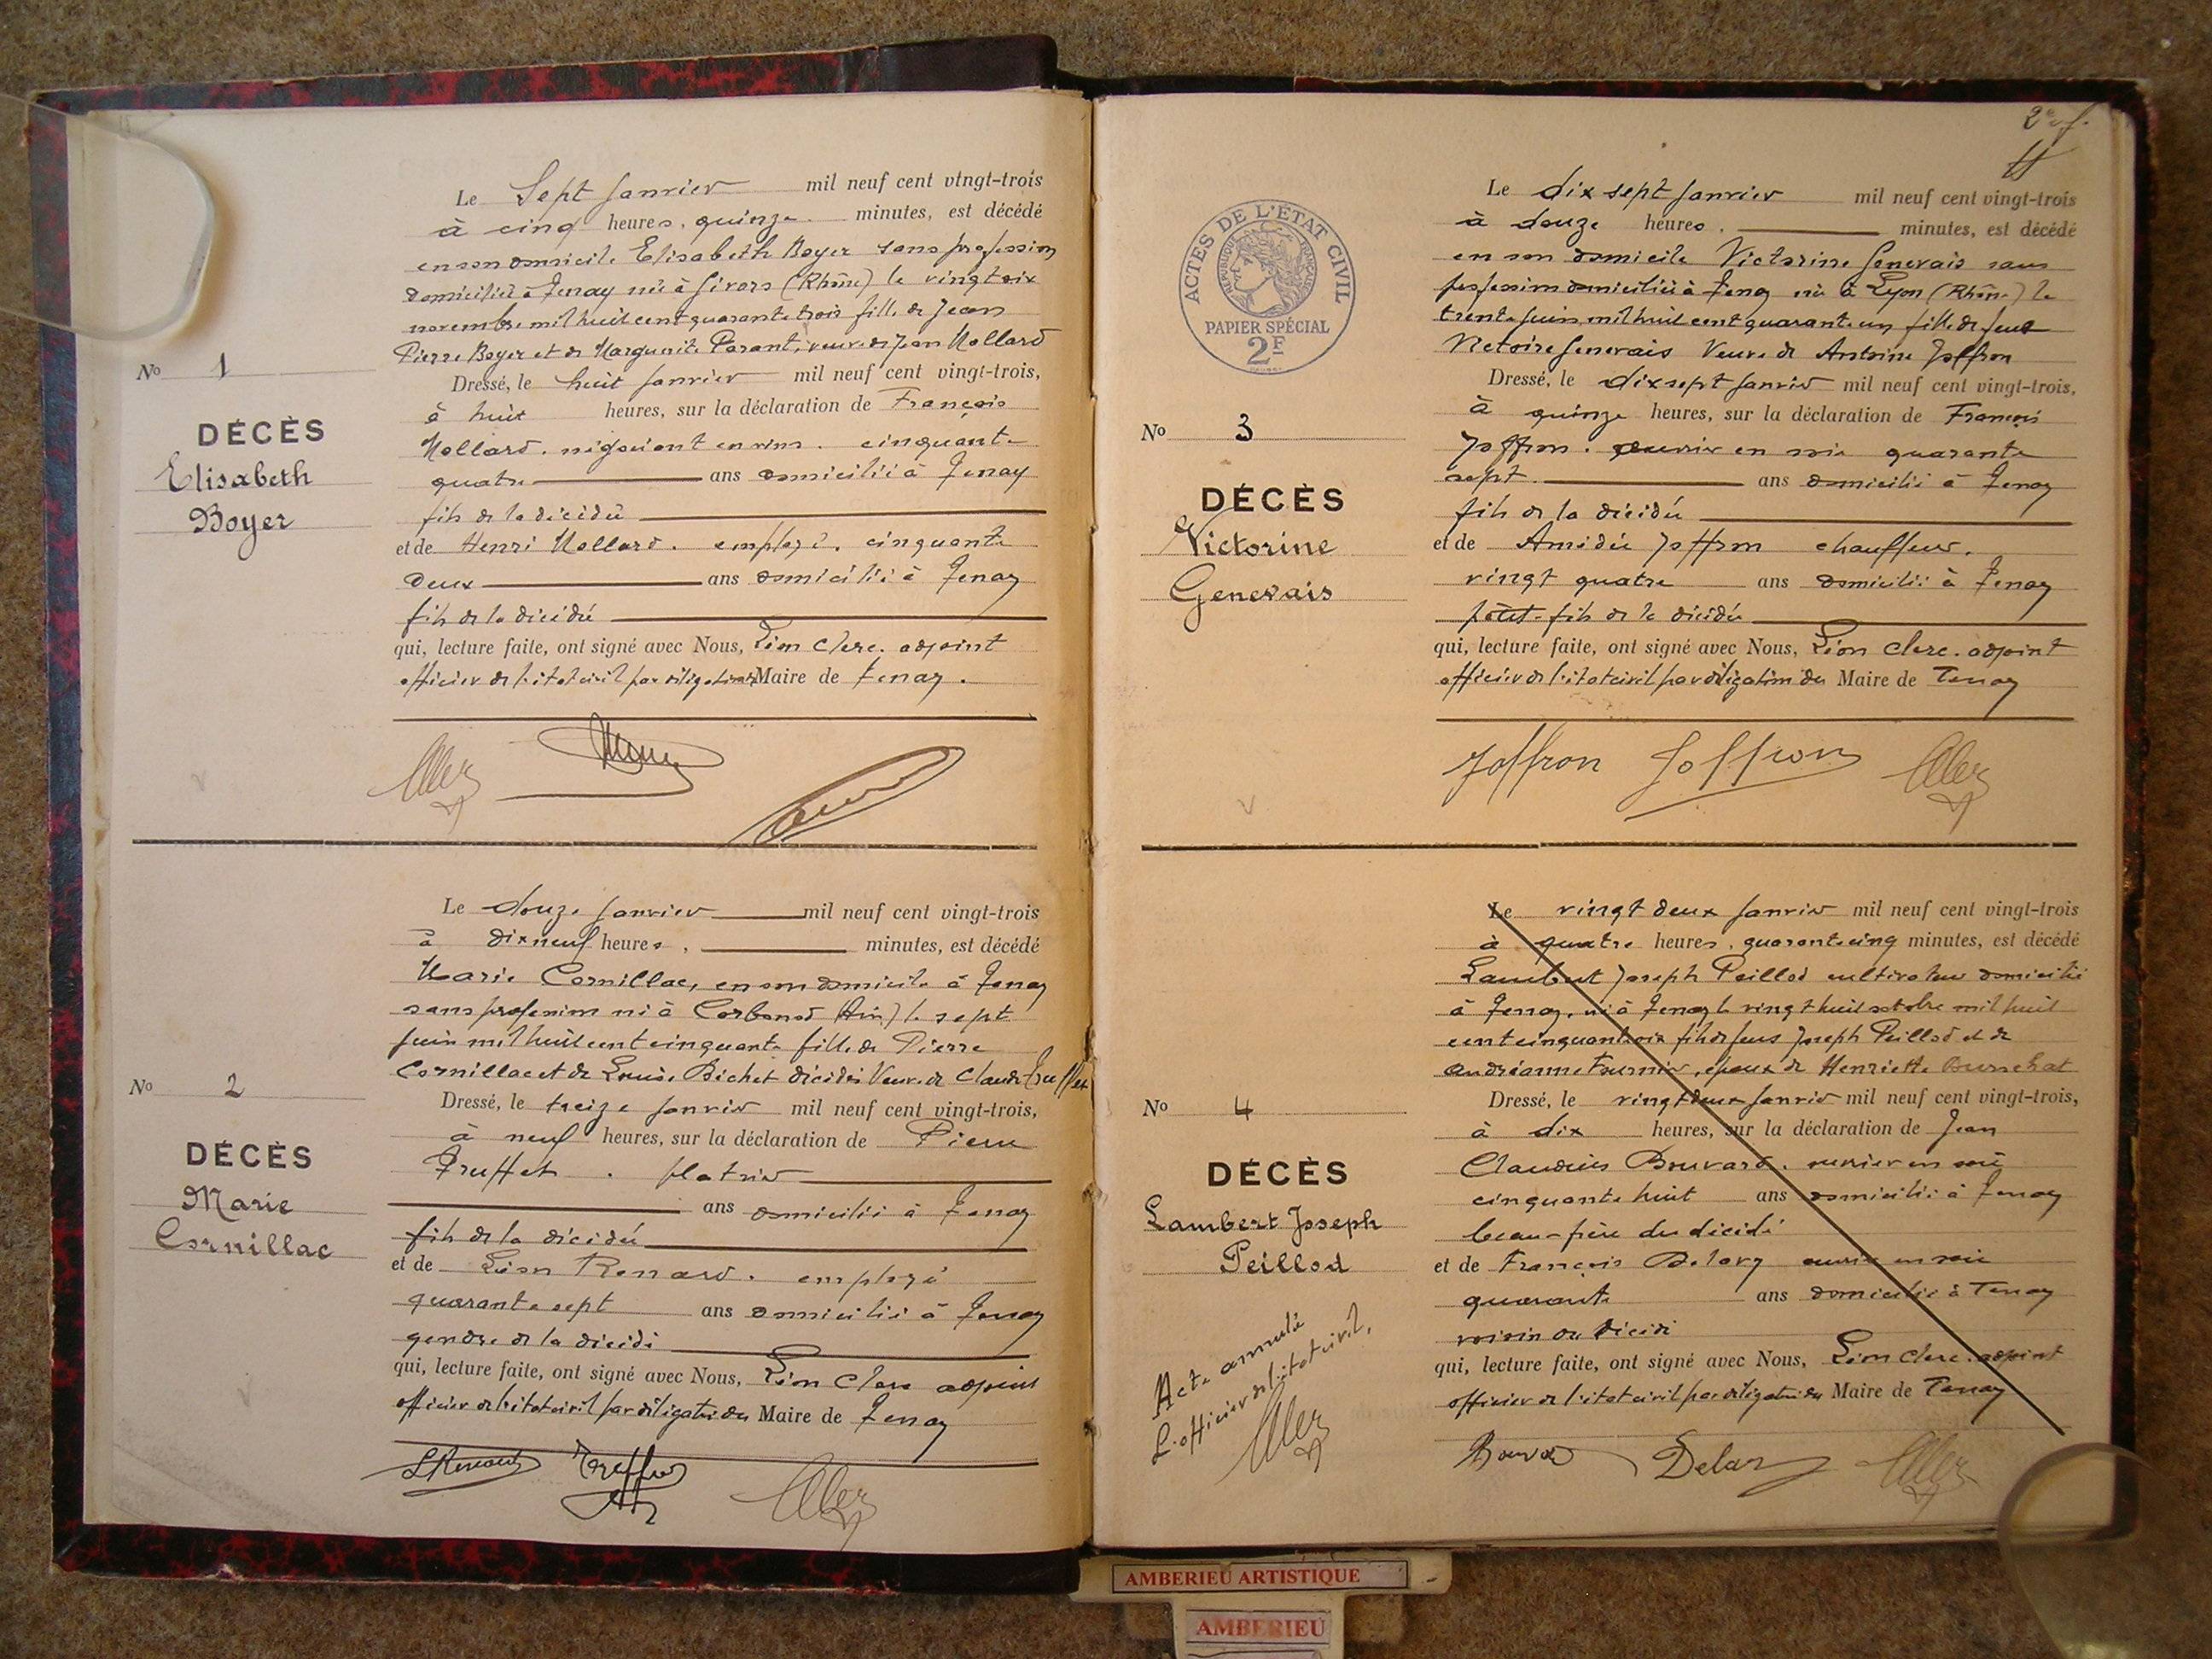 Le Sept Janvier mil neuf cent vingt-trois
à cinq heures, quinze minutes, est décédé
en son domicile Elisabeth Boyer sans profession
domiciliée à Tenay née à Givors (Rhône) le vingt six
novembre mil huit cent quarante trois fille de Jean
Pierre Boyer et de Marguerite Parant, veuve de Jean Mollard
No 1
DÉCÈS
Elisabeth
Boyer
Dressé, le huit Janvier mil neuf cent vingt-trois,
à huit heures, sur la déclaration de François
Mollard, négociant en vins, cinquante
quatre ans domicilié à Tenay
fils de la décédée
et de Henri Mollard, employé, cinquante
deux ans domicilié à Tenay
fils de la décédée
qui, lecture faite, ont signé avec Nous, Léon Clerc, adjoint
officier de l'état civil par délégation Maire de Tenay.
Le douze Janvier mil neuf cent vingt-trois
à dix neuf heures, minutes, est décédé
Marie Cornillac, en son domicile à Tenay
sans profession née à Corbonod (Ain) le sept
Juin mil huit cent cinquante fille de Pierre
Cornillac et de Louise Bichet décédés Veuve de Claude Truffet
No 2
DÉCÈS
Marie
Cornillac
Dressé, le treize Janvier mil neuf cent vingt-trois,
à neuf heures, sur la déclaration de Pierre
Truffet, platrier
ans domicilié à Tenay
fils de la décédée
et de Léon Renard, employé
quarante sept ans domicilié à Tenay
gendre de la décédé
qui, lecture faite, ont signé avec Nous, Léon Clerc adjoint
officier de l'état civil par délégation du Maire de Tenay
LRenard Truffet
2e f.
ACTES DE L'ÉTAT CIVIL
RÉPUBLIQUE FRANÇAISE
PAPIER SPÉCIAL
2F
Le dix sept Janvier mil neuf cent vingt-trois
à douze heures, minutes, est décédé
en son domicile Victorine Genevais sans
profession domiciliée à Tenay née à Lyon (Rhône) le
trente Juin mil huit cent quarante un fille de feue
Victoire Genevais Veuve de Antoine Joffron
No 3
DÉCÈS
Victorine
Genevais
Dressé, le dix sept Janvier mil neuf cent vingt-trois,
à quinze heures, sur la déclaration de François
Joffron, ouvrier en soie quarante
sept ans domicilié à Tenay
fils de la décédée
et de Amédée Joffron chauffeur,
vingt quatre ans domicilié à Tenay
petit-fils de la décédée
qui, lecture faite, ont signé avec Nous, Léon Clerc, adjoint
officier de l'état civil par délégation du Maire de Tenay
Joffron Joffron
Le vingt deux Janvier mil neuf cent vingt-trois
à quatre heures, quarante cinq minutes, est décédé
Lambert Joseph Peillod cultivateur domicilié
à Tenay, né à Tenay le vingt huit octobre mil huit
cent cinquante six fils de feus Joseph Peillod et de
Andréanne Fournier, époux de Henriette
No 4
DÉCÈS
Lambert Joseph
Peillod
Dressé, le vingt deux Janvier mil neuf cent vingt-trois,
à dix heures, sur la déclaration de Jean
Claudius Bouvard, ouvrier en soie
cinquante huit ans domicilié à Tenay
beau-frère du décédé
et de François Delory ouvrier en soie
quarante ans domicilié à Tenay
voisin du décédé
qui, lecture faite, ont signé avec Nous, Léon Clerc, adjoint
officier de l'état civil par délégation du Maire de Tenay
Acte annulé
L'officier de l'état civil,
AMBERIEU ARTISTIQUE
AMBERIEU